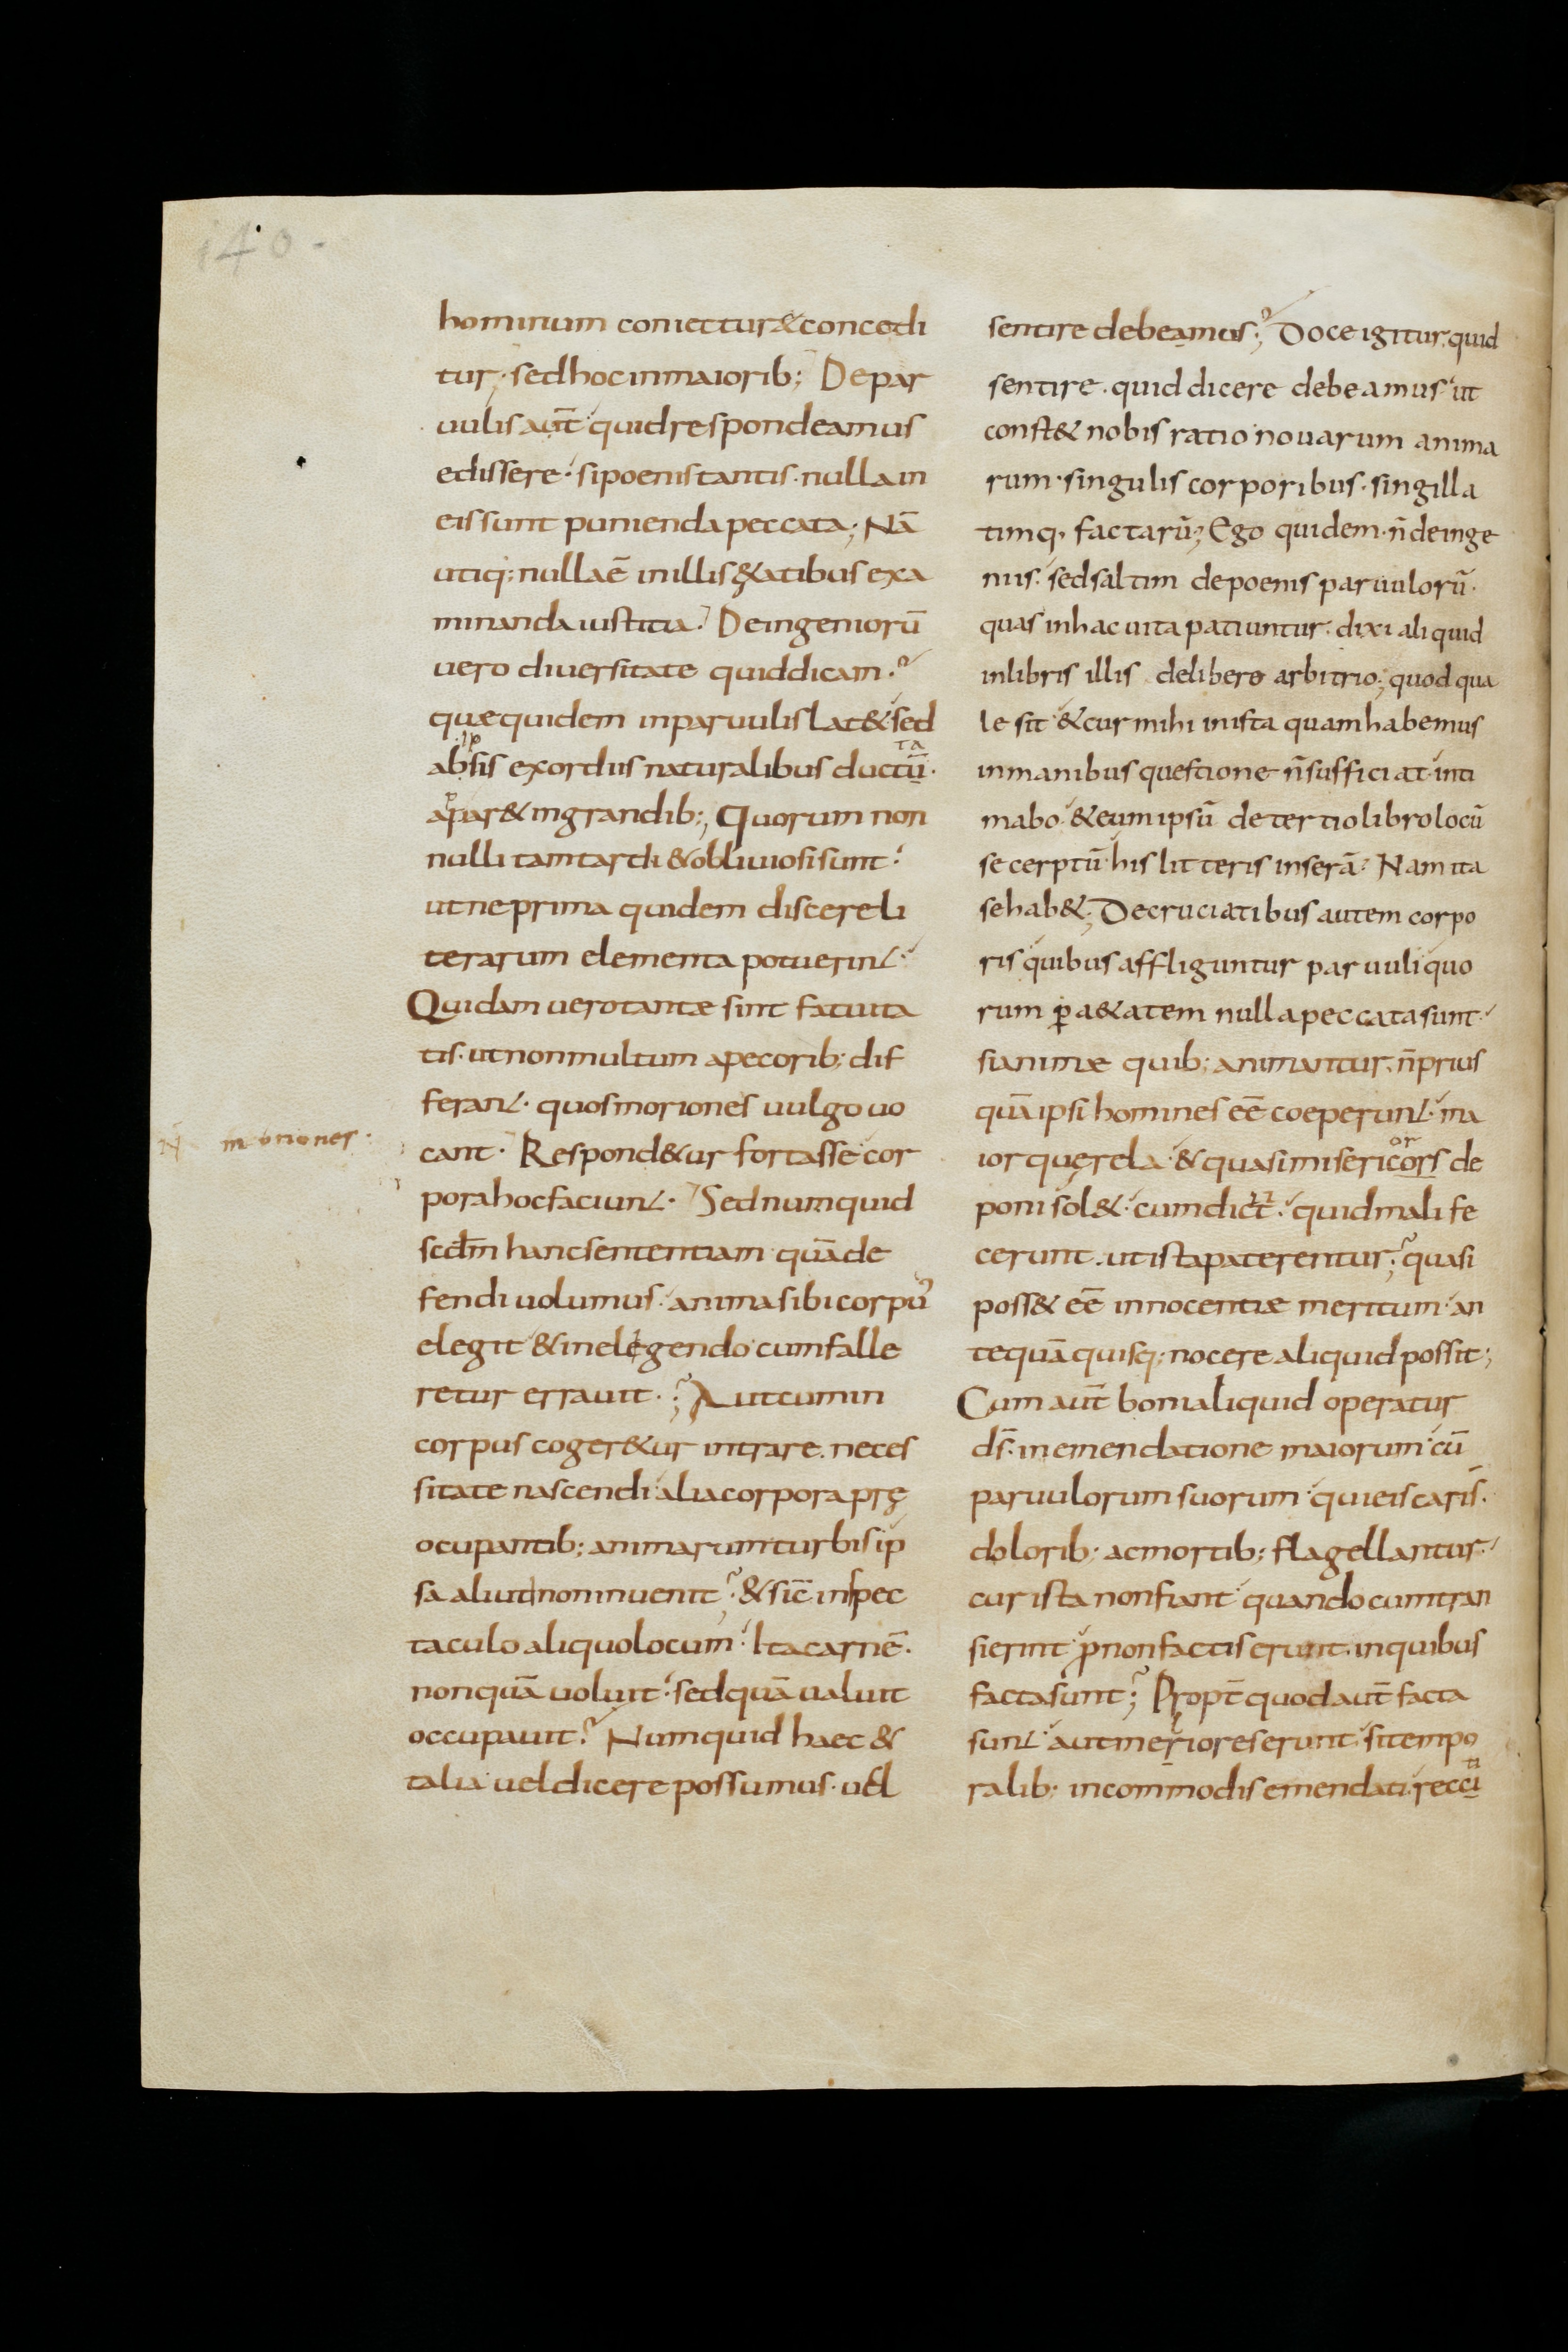 140.
hominum coniectur & concedi
tur; sed hoc in maiorib; De par
uulis aut̄ quid respondeamus
edissere. si poenis tantis. nulla in
eis sunt punienda peccata; Nā
utiq; nulla ē in illis ętatibus exa
minanda iustitia. De ingeniorū
uero diuersitate quid dicam.?
quae quidem in paruulis lat& sed
ab ipsis exordiis naturalibus ductū ta
appar& in grandib; Quorum non
nulli tam tardi & obliuiosi sunt.
ut ne prima quidem discere li
terarum elementa potuerint.
Quidam uero tantae sint fatuita
tis. ut non multum a pecorib; dif
ferant. quos moriones uulgo uo
moriones.
cant. Respond&ur fortasse cor
pora hoc faciunt. Sed numquid
scdm̄ hanc sententiam quā de
fendi uolumus. anima sibi corpus
elegit & in eligendo cum falle
retur errauit.? Aut cum in
corpus coger&ur intrare. neces
sitate nascendi alia corpora prę
ocupantib; animarum turbis ip
sa aliud non inuenit? & sic̄ in spec
taculo aliquo locum. Ita carnē.
non quā uoluit. sed quā ualuit
occupauit? Numquid haec &
talia uel dicere possumus. uel
sentire debeamus.? Doce igitur. quid
sentire. quid dicere debeamus ut
const& nobis ratio nouarum anima
rum. singulis corporibus. singilla
timq; factarū; Ego quidem. n̄ de inge
niis. sed saltim de poenis paruulorū.
quas in hac uita patiuntur. dixi aliquid
in libris illis de libero arbitrio; quod qua
le sit & cur mihi in ista quam habemus
in manibus questione n̄ sufficiat. inti
mabo. & eum ipsū de tertio libro locū
se cerptū his litteris inserā. Nam ita
se hab&; De cruciatibus autem corpo
ris quibus affliguntur paruuli quo
rum p̄ a&atem nulla peccata sunt.
si animae quib; animantur. n̄ prius
quā ipsi homines eē coeperunt. ma
ior querela. & quasi misericors or de
poni sol&. cum dicit̄. quid mali fe
cerunt. ut ista paterentur;? quasi
poss& eē innocentiae meritum. an
tequā quisq; nocere aliquid possit;
Cum aut̄ boni aliquid operatur
ds̄. in emendatione maiorum. cū
paruulorum suorum qui eis caris̄.
dolorib; ac mortib; flagellantur.
cur ista non fiant quando cum tran
sierint. p non factis erunt. in quibus
facta sunt;? Propt̄ quod aut̄ facta
sunt. aut meriores erunt. si tempo
ralib; incommodis emendati. recci ti